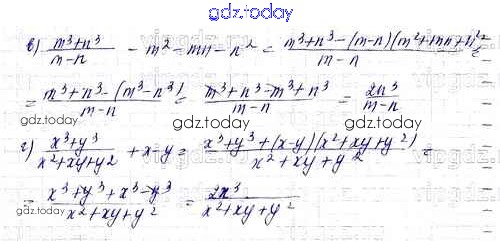 gdz.today
в) (m³+n³)/(m-n) - m² - mn - n² = (m³+n³-(m-n)(m²+mn+n²))/(m-n) =
= (m³+n³-(m³-n³))/(m-n) = (m³+n³-m³+n³)/(m-n) = 2n³/(m-n)
gdz.today gdz.today
г) (x³+y³)/(x²+xy+y²) + x-y = (x³+y³+(x-y)(x²+xy+y²))/(x²+xy+y²) =
gdz.today
= (x³+y³+x³-y³)/(x²+xy+y²) = 2x³/(x²+xy+y²)
gdz.today gdz.today